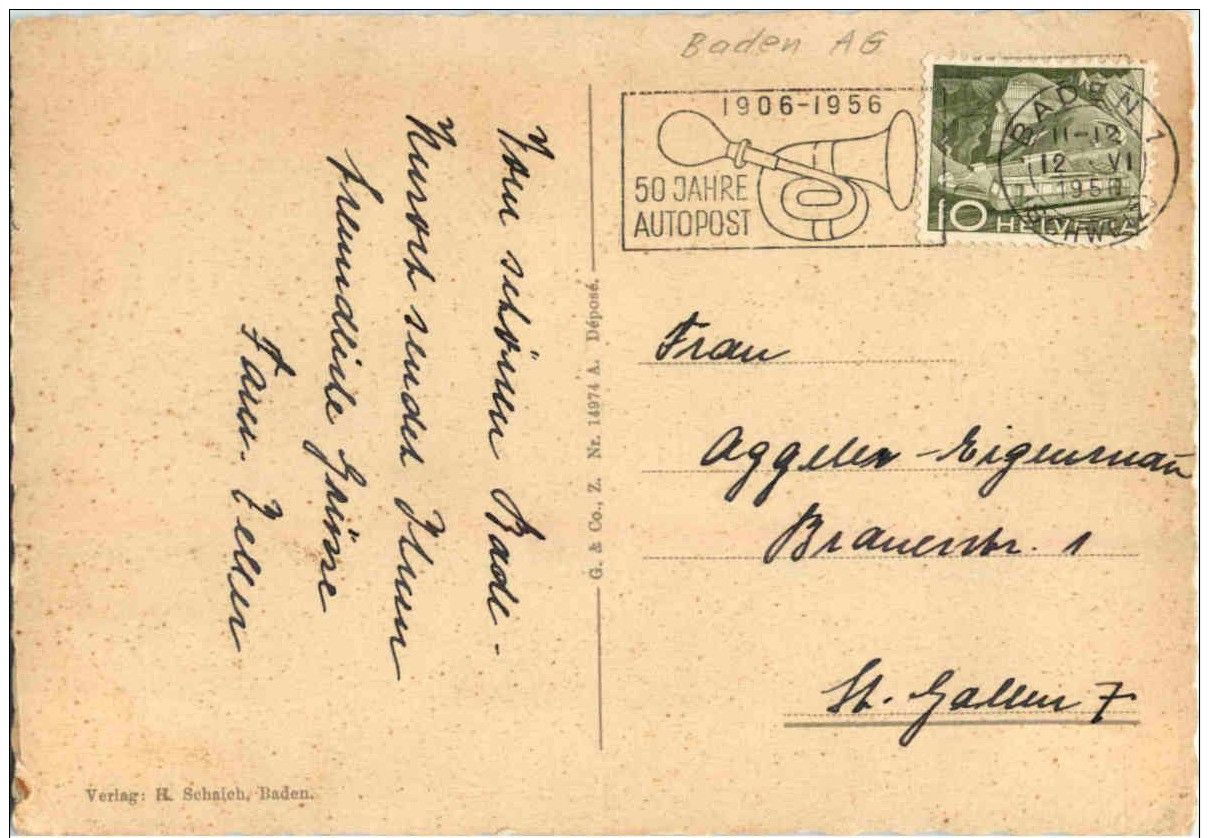 Baden AG
1906-1956
50 JAHRE
AUTOPOST
BADEN 1
11-12
12. VI
1956
(SCHWEIZ)
10 HELVETIA
Vom schönen Bade-
Kurort sendet Ihnen
freundliche Grüsse
Fam. Zeller
G. & Co., Z. Nr. 14974 A. Déposé.
Frau
Aggeler-Eigenmann
Brauerstr. 1
St. Gallen 7
Verlag: H. Schaich, Baden.